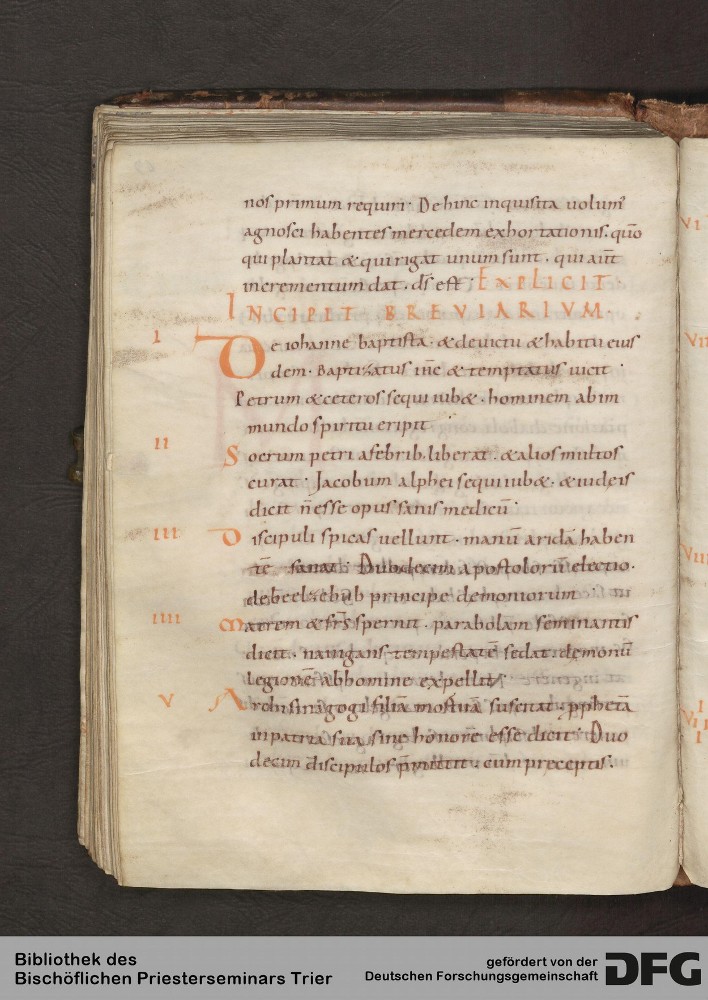 nos primum requiri· De hinc inquisita uolum᷒
agnosci habentes mercedem exhortationis. quō
qui plantat & qui rigat unum sunt. qui aut̄
incrementum dat. d̄s est; EXPLICIT
INCIPIT BREVIARIVM.
I De iohanne baptista· & de uictu & habitu eius
dem. Baptizatus ih̄c & temptatus uicit·
Petrum & ceteros sequi iub&. hominem ab im
mundo spiritu eripit
II Socrum petri a febrib; liberat. & alios multos
curat· Jacobum alphei sequi iub&. & iudeis
dicit n̄ esse opus sanis medicū·
III Discipuli spicas uellunt. manū aridā haben
tē sanat: Duodecim apostolorū electio.
de beelzebub principe demoniorum
IIII Matrem & fr̄s spernit. parabolam seminantis
dicit. nauigans tempestatē sedat. demonū
legionē ab homine expellit;
V Archisinagogi filiā mortuā suscitat· pphetā
in patria sua sine honore esse dicit· Duo
decim discipulos p̄mittit. cum preceptis.
VI
VII
VIII
VIIII
Bibliothek des
Bischöflichen Priesterseminars Trier
gefördert von der
Deutschen Forschungsgemeinschaft
DFG